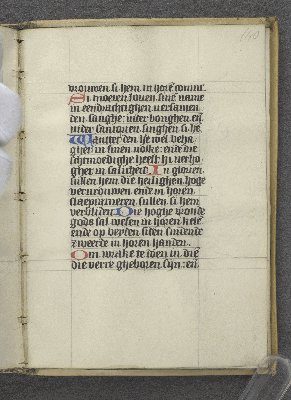 vrouwen si hem in hore coninc
Si moeten louen sine name
in eendrachtighen versamen
den sanghe: inder bonghen en
inder santeren singhen si he
Want er den is wel beha
gher in sinen volke: ende die
sachtmoedighe heeft hi verho
ghet in salicheit In glorien
sullen hem die heilighen hoge
vervrouwen ende in horen
slaepcameren sullen si hem
verbliden Die hoghe vroude
gods sal wesen in horen kele
ende op beyden siden snidende
zweerde in horen handen
Om wrake te doen in die
die verre gheboren sijn: en